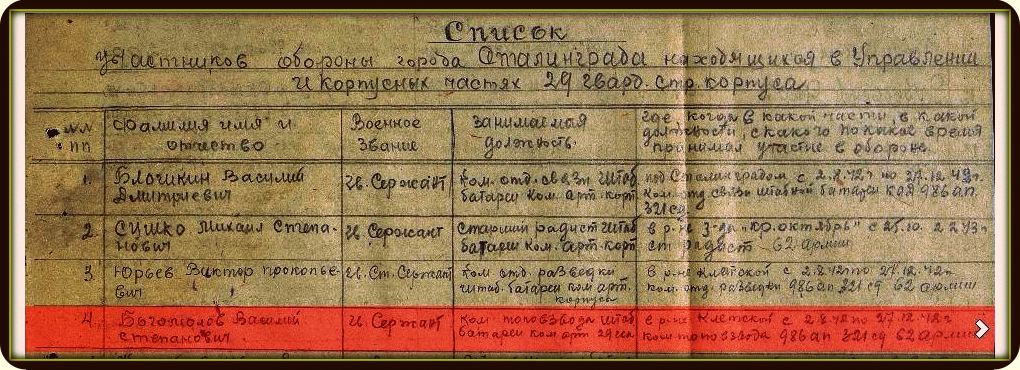 Список
участников обороны города Сталинграда находящихся в Управлении
и корпусных частях 29 гвард. стр. корпуса
№№ пп
Фамилия имя и отчество
Военное звание
занимаемая должность
где, когда в какой части, в какой
должности, с какого по какое время
принимал участие в обороне
1. Блошкин Василий Дмитриевич
Гв. Сержант
ком. отд. связи штаб
батареи ком. арт. корп.
под Сталинградом с 2.8.42г по 27.12.42г.
ком. отд. связи штабной батареи 986 ап
321 сд
2 Сушко Михаил Степанович
Гв. Сержант
Старший радист штаб
батареи ком. арт. корп
в р-не з-да "кр. октябрь" с 25.10.
ст радист 62 армии
3. Юрьев Виктор Прокопьевич
Гв. Ст. Сержант
ком отд. разведки
штаб. батареи ком арт.
корпуса
в р-не Клетской с 2.8.42 по 27.12.42г.
ком. отд. разведки 986 ап 321 сд 62 армии
4. Богомолов Василий
Степанович.
Гв Сержант
ком топовзвода штаб
батареи ком арт 29 гск
в р-не Клетской с 2.8.42 по 27.12.42г
ком топовзвода 986 ап 321 сд 62 армии